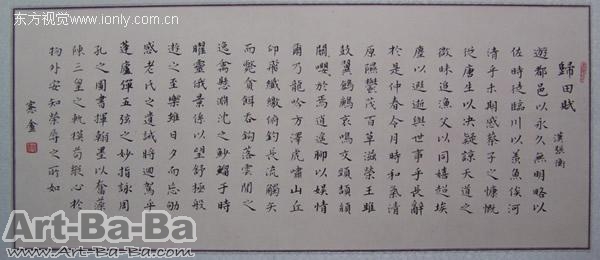 东方视觉 www.ionly.com.cn
歸田賦 漢張衡
遊都邑以永久無明略以
佐時徒臨川以羨魚俟河
清乎未期感蔡子之慷慨
從唐生以決疑諒天道之
微昧追漁父以同嬉超埃
塵以遐逝與世事乎長辭
於是仲春令月時和氣清
原隰鬱茂百草滋榮王雎
鼓翼鶬鶊哀鳴交頸頡頏
關嚶於焉逍遙聊以娛情
爾乃龍吟方澤虎嘯山丘
仰飛纖繳俯釣長流觸矢
而斃貪餌吞鉤落雲間之
逸禽懸淵沈之魦鰡于時
曜靈俄景係以望舒極般
遊之至樂雖日夕而忘劬
感老氏之遺誡將迴駕乎
蓬廬彈五弦之妙指詠周
孔之圖書揮翰墨以奮藻
陳三皇之軌模苟縱心於
物外安知榮辱之所如
Art-Ba-Ba
Art-Ba-Ba